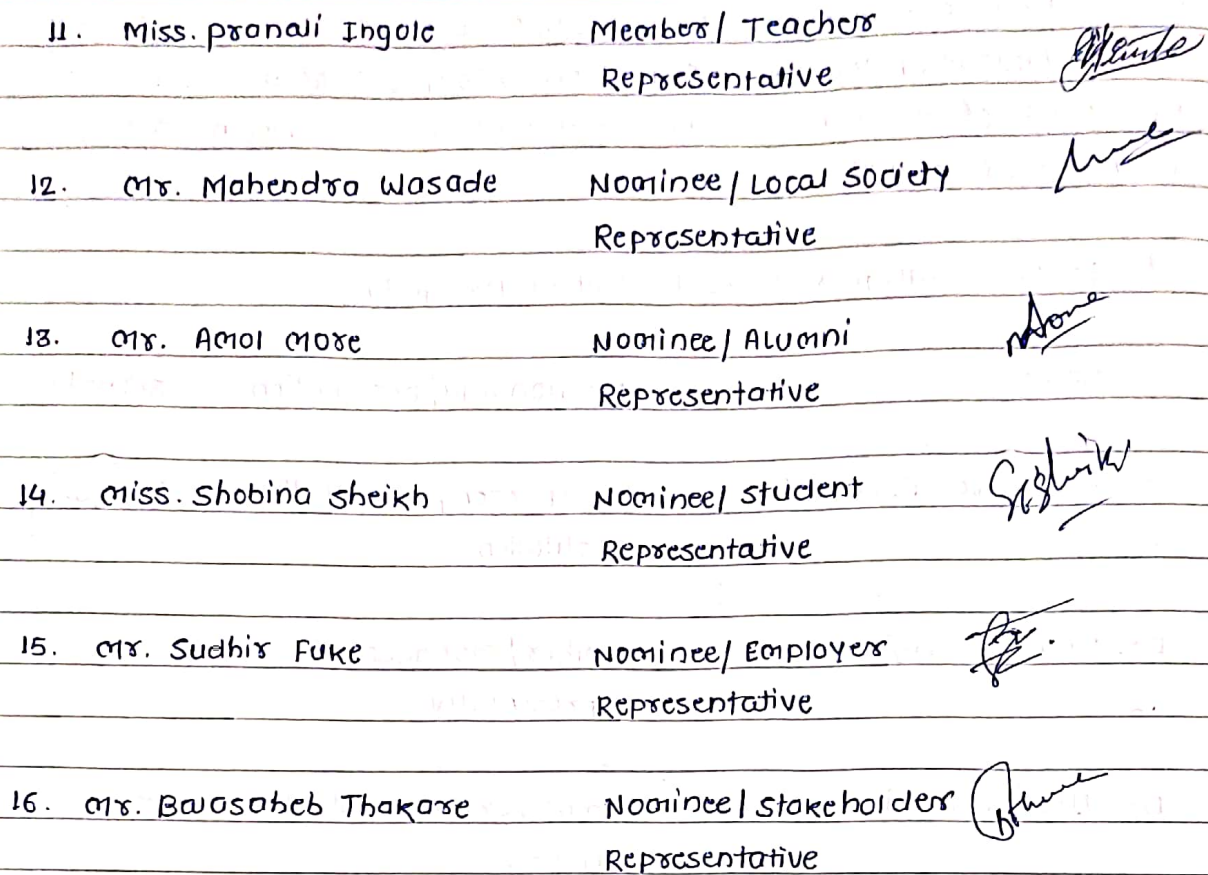 11. Miss. Pranali Ingole Member/ Teacher
Representative
12. Mr. Mahendra Wasade Nominee/ Local Society
Representative
13. Mr. Amol More Nominee/ Alumni
Representative
14. Miss. Shobina Sheikh Nominee/ Student
Representative
15. Mr. Sudhir Fuke Nominee/ Employer
Representative
16. Mr. Bausaheb Thakare Nominee/ Stakeholder
Representative